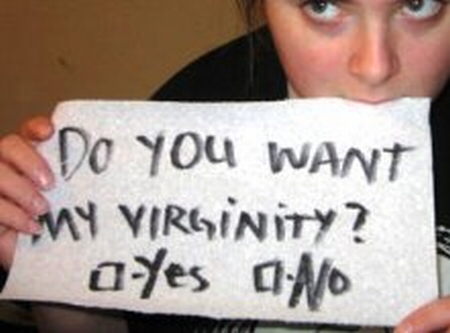 DO YOU WANT
MY VIRGINITY?
☐-Yes ☐-No